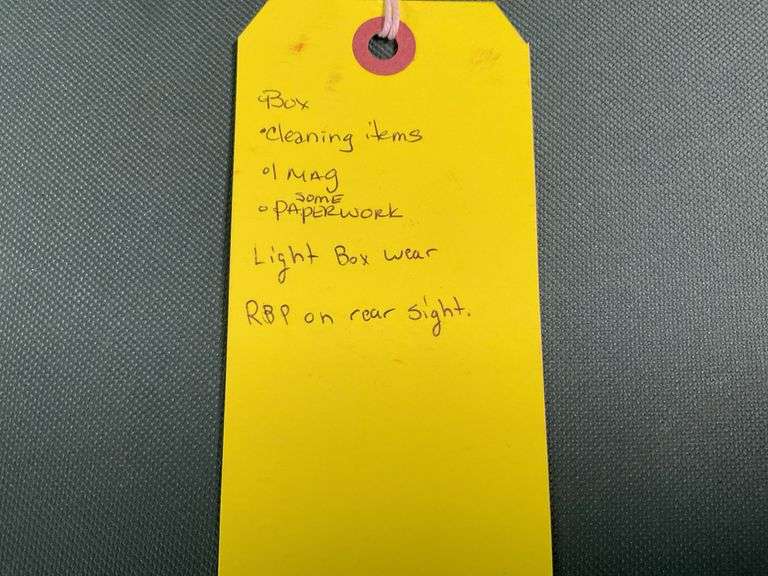 •Box
•Cleaning items
•1 MAG
SOME
•PAPERWORK
Light Box wear
RBP on rear sight.